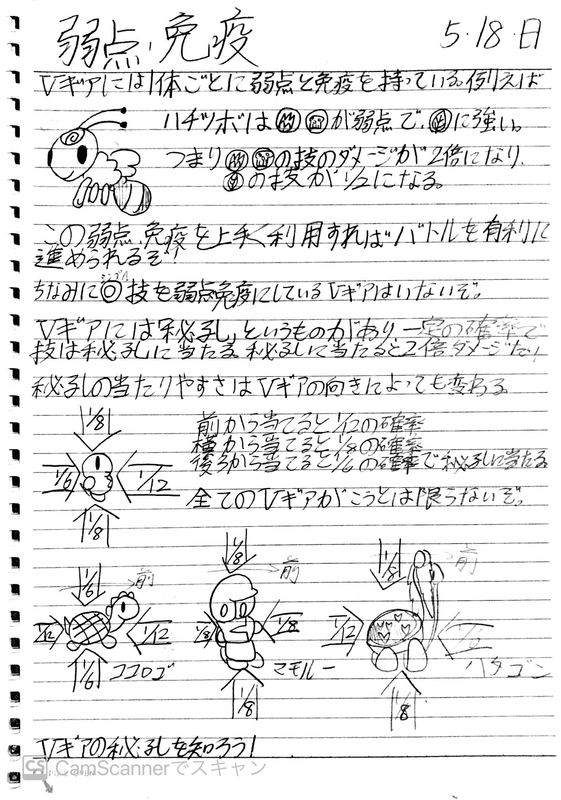 弱点・免疫 5・18・日
Vギアには1体ごとに弱点と免疫を持っている。例えば
ハチツボは が弱点で、 に強い。
つまり の技のダメージが2倍になり、
の技が1/2になる。
この弱点、免疫を上手く利用すればバトルを有利に
進められるぞ!
ちなみに 技を弱点免疫にしているVギアはいないぞ。
Vギアには「秘孔」というものがあり、一定の確率で
技は秘孔に当たる。秘孔に当たると2倍ダメージだ!
秘孔の当たりやすさはVギアの向きによっても変わる
1/8
1/6 1/12
1/8
前から当てると1/12の確率
横から当てると1/8の確率
後ろから当てると1/6の確率で秘孔に当たる
全てのVギアがこうとは限らないぞ。
1/6 前
1/12 1/12
1/6 ココロゴ
1/8 前
1/8 1/8
1/8 マモルー
1/8 前
1/12
1/8 ハタゴン
Vギアの秘孔を知ろう!
CS CamScannerでスキャン